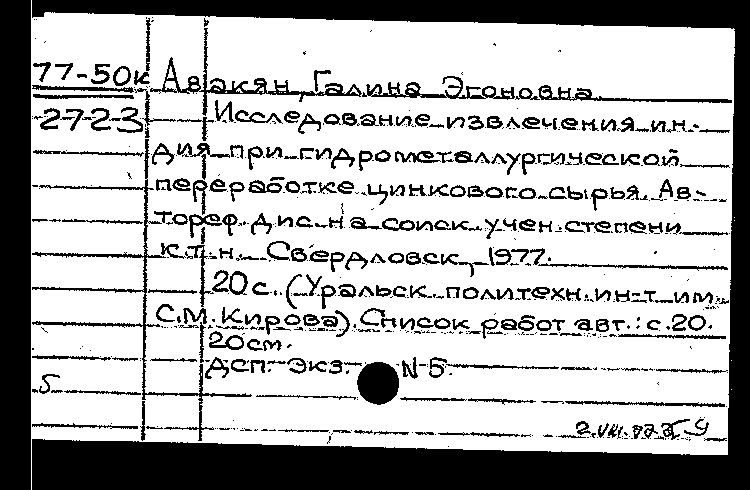 77-50к Авакян, Галина Эгоновна.
2723 Исследование извлечения ин-
дия при гидрометаллургической
переработке цинкового сырья. Ав-
тореф. дис. на соиск. учен. степени
к.т.н. Свердловск, 1977.
20 с. (Уральск. политехн. ин-т им.
С.М. Кирова). Список работ авт.: с. 20.
20 см.
ДСП. Экз. N 5.
5
2.VIII.77